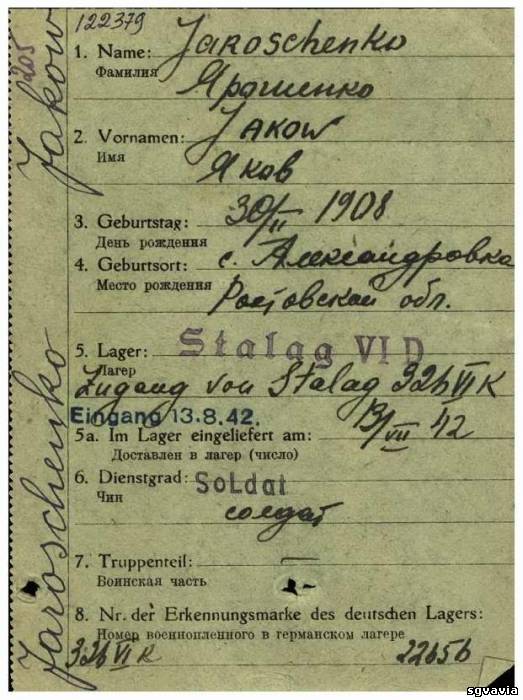 122379
205
Jaroschenko Jakow
1. Name: Jaroschenko
Фамилия Ярошенко
2. Vornamen: Jakow
Имя Яков
3. Geburtstag: 30/II 1908
День рождения
4. Geburtsort: с. Александровка
Место рождения Ростовской обл.
5. Lager: Stalag VI D
Лагер
Zugang von Stalag 326 VI K
Eingang 13.8.42.
5a. Im Lager eingeliefert am: 13/VII 42
Доставлен в лагер (число)
6. Dienstgrad: Soldat
Чин солдат
7. Truppenteil: —
Воинская часть
8. Nr. der Erkennungsmarke des deutschen Lagers:
Номер военнопленного в германском лагере
326 VI K 22656
sgvavia